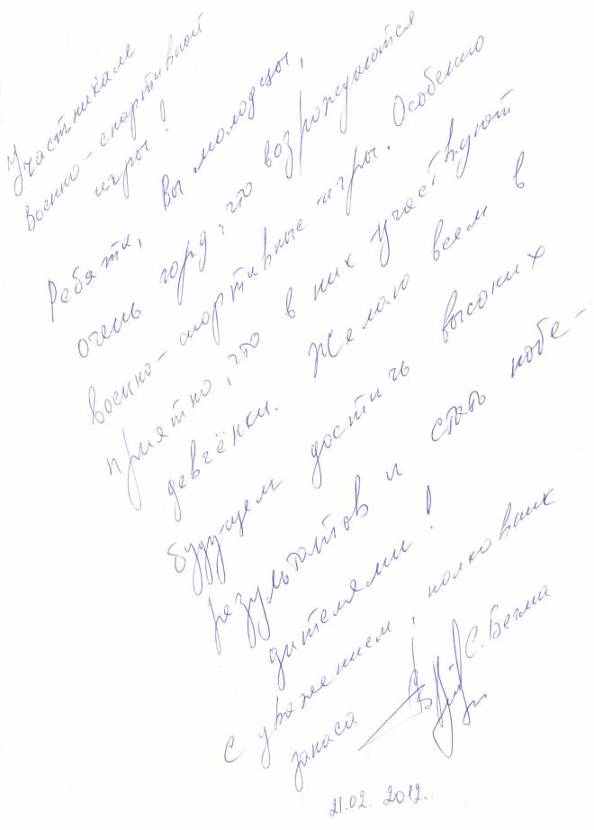 Участникам
военно-спортивной
игры!
Ребята, вы молодцы,
очень горд, что возрождаются
военно-спортивные игры. Особенно
приятно, что в них участвуют
девчёнки. Желаю всем в
будущем достичь высоких
результатов и стать побе-
дителями!
С уважением, полковник
запаса С. Бегма
21.02.2012.